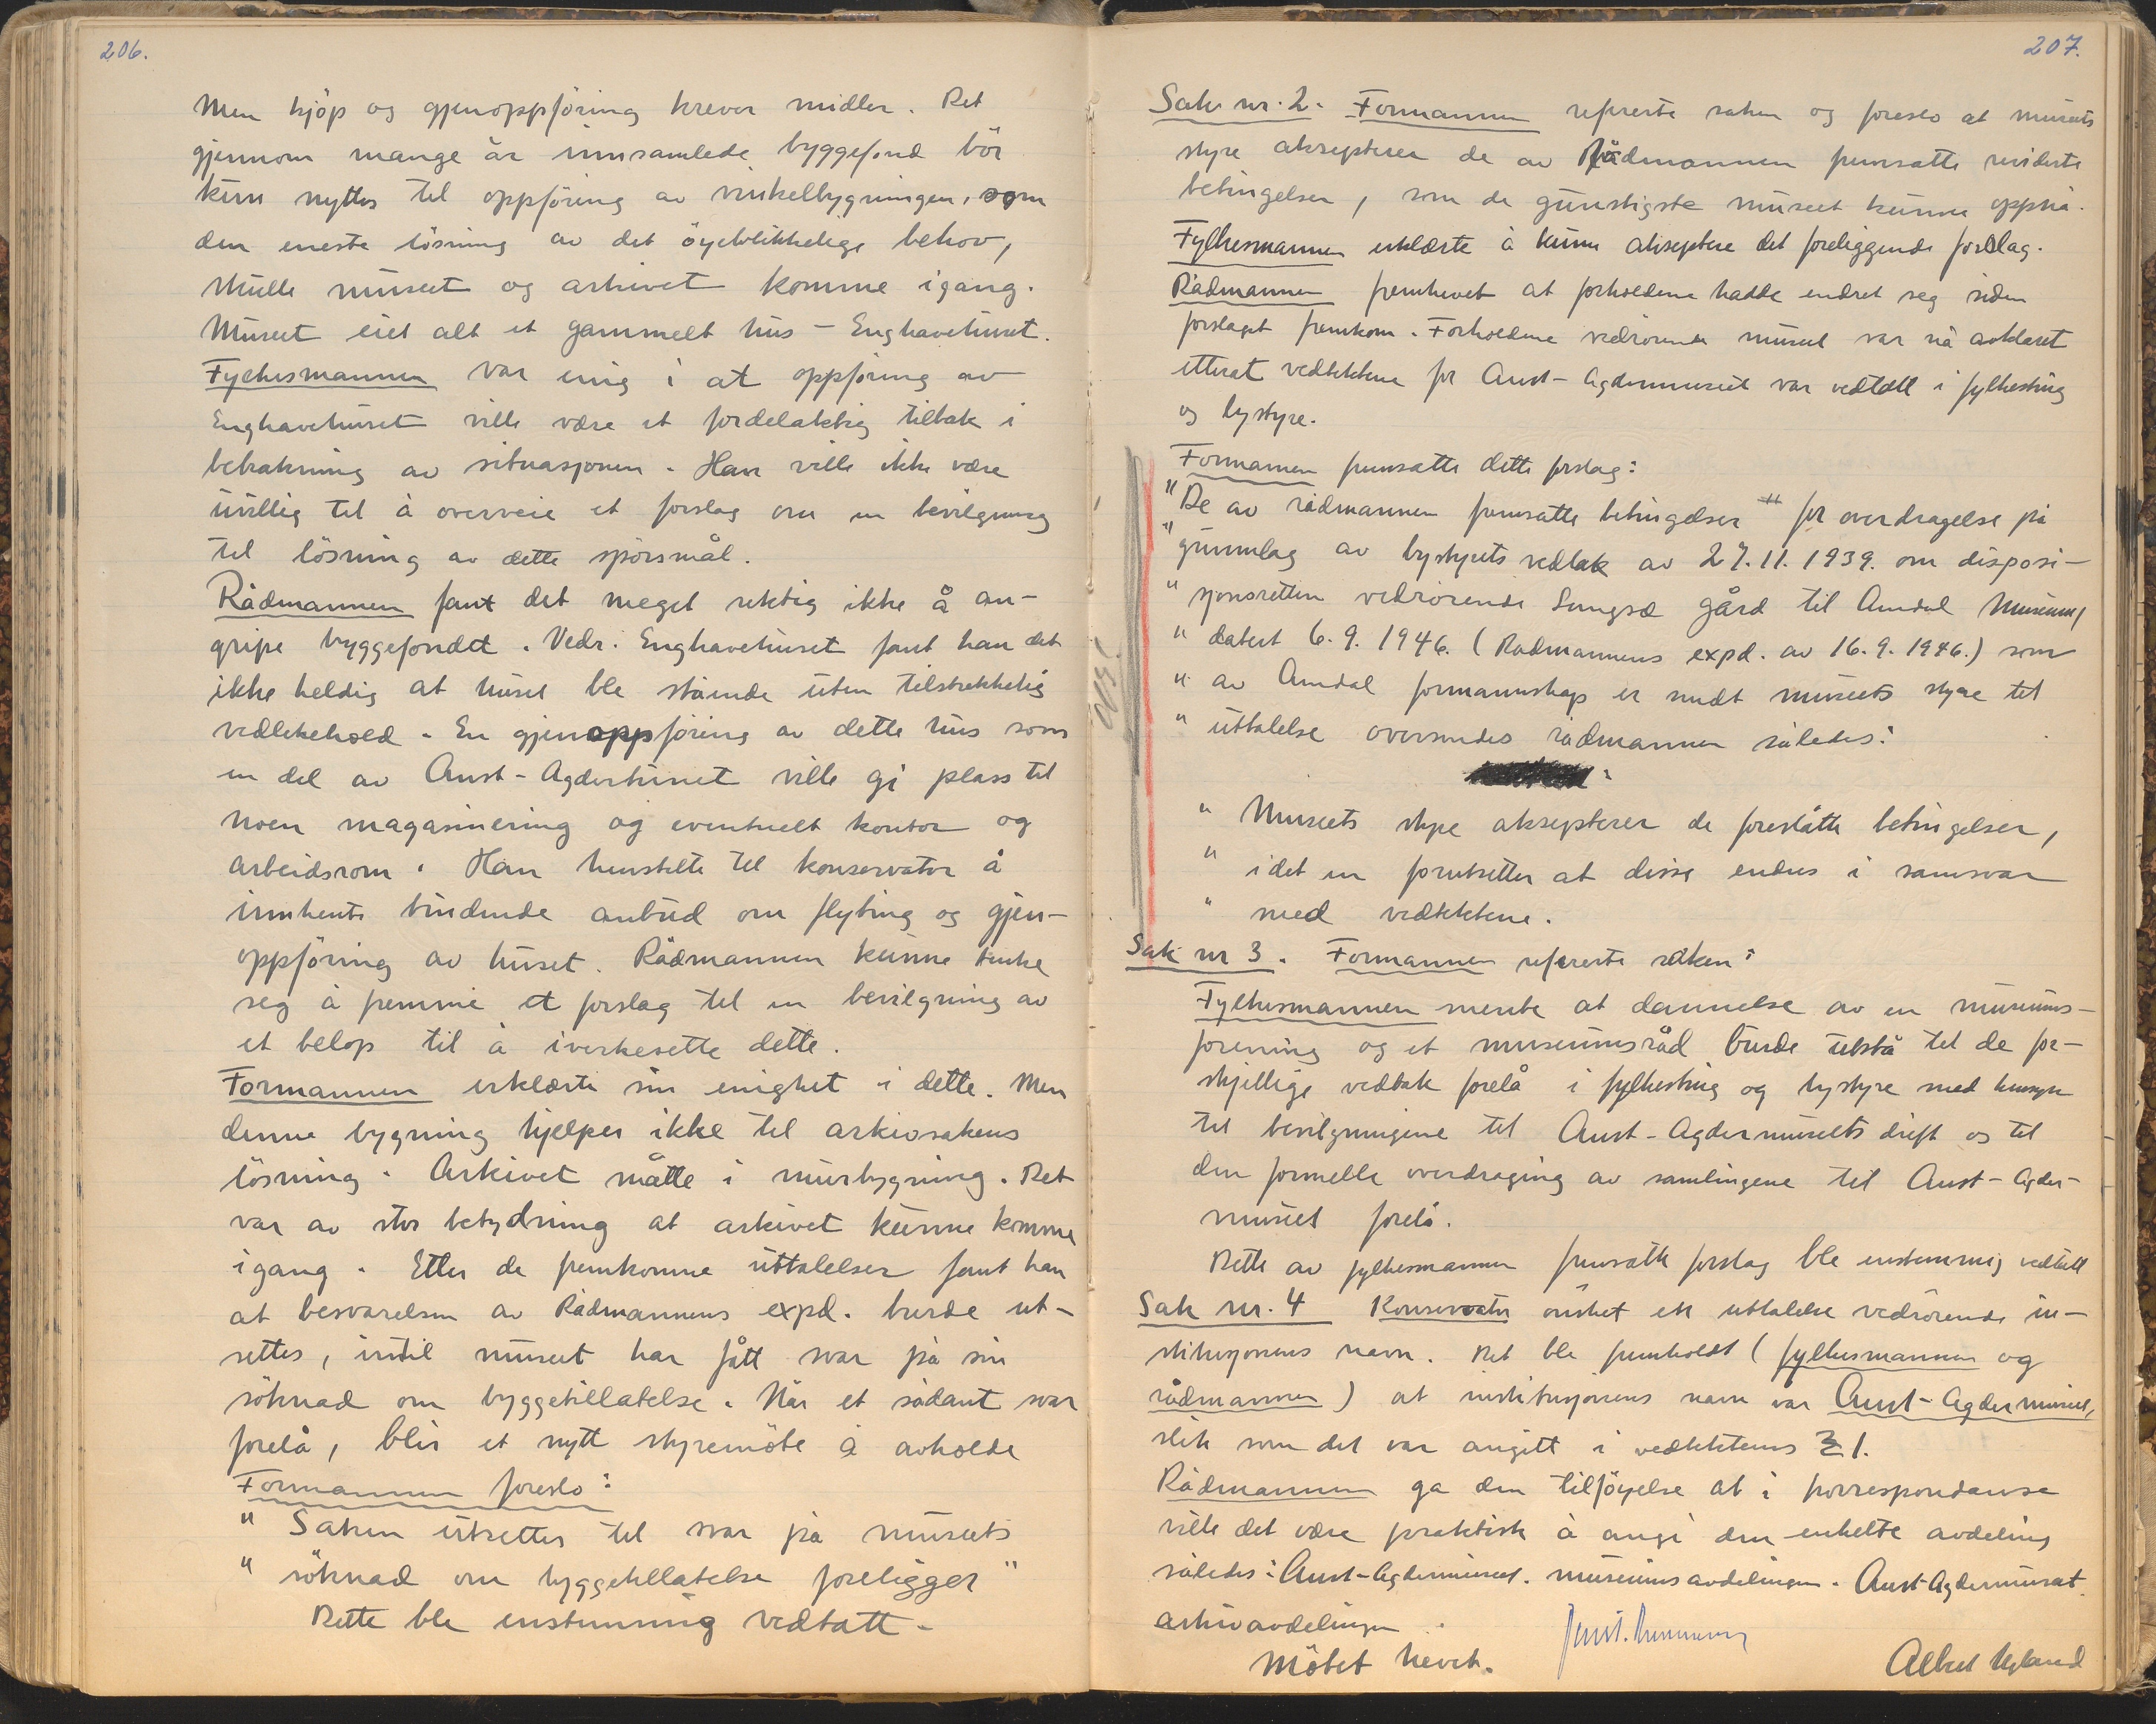 206.
Men kjöp og gjenoppföring krever midler. Det
gjennom mange år innsamlede byggefond bör
kun nyttes til oppföring av vinkelbygningen, som
den eneste lösning av det öyeblikkelige behov,
skulle museet og arkivet komme igang.
Museet eiet alt et gammelt hus - Enghavehuset.
Fylkesmannen var enig i at oppföring av
Enghavehuset ville være et fordelaktig tiltak i
betraktning av situasjonen. Han ville ikke være
uvillig til å overveie et forslag om en bevilgning
til lösning av dette spörsmål.
Rådmannen fant det meget riktig ikke å an-
gripe byggefondet. Vedr. Enghavehuset fant han det
ikke heldig at huset ble stående uten tilstrekkelig
vedlikehold. En gjenoppföring av dette hus som
en del av Aust-Agdertunet ville gi plass til
noen magasinering og eventuelt kontor og
arbeidsrom. Han henstilte til konservator å
innhente bindende anbud om flytting og gjen-
oppföring av huset. Rådmannen kunne tenke
seg å fremme et forslag til en bevilgning av
et belop til å iverksette dette.
Formannen erklærte sin enighet i dette. Men
denne bygning hjelper ikke til arkivsakens
lösning. Arkivet måtte i murbygning. Det
var av stor betydning at arkivet kunne komme
igang. Etter de fremkomne uttalelser fant han
at besvarelsen av Rådmannens expd. burde ut-
settes, intil museet har fått svar på sin
söknad om byggetillatelse. Når et sådant svar
forelå, blir et nytt styremöte å avholde
Formannen foreslo:
" Saken utsettes til svar på museets
" söknad om byggetillatelse foreligger "
Dette ble enstemmig vedtatt.
207.
Sak nr. 2. Formannen refererte saken og foreslo at museets
styre aksepterer de av Rådmannen fremsatte reviderte
betingelser, som de gunstigste museet kunne oppnå.
Fylkesmannen erklærte å kunne akseptere det foreliggende forslag.
Rådmannen fremhevet at forholdene hadde endret seg siden
forslaget fremkom. Forholdene vedrörende museet var nå avklaret
etterat vedtektene for Aust-Agdermuseet var vedtatt i fylkesting
og bystyre.
Formannen fremsatte dette forslag:
" De av rådmannen fremsatte betingelser for overdragelse på
" grunnlag av bystyrets vedtak av 27.11.1939. om disposi-
" sjonsretten vedrörende Langsæ gård til Arendal Museum,
" datert 6.9.1946. (Rådmannens expd. av 16.9.1946.) som
" av Arendal formannskap er sendt museets styre til
" uttalelse oversendes rådmannen således:
" Museets styre aksepterer de foreslåtte betingelser,
" idet en forutsetter at disse endres i samsvar
" med vedtektene.
Sak nr 3. Formannen refererte saken:
Fylkesmannen mente at dannelse av en museums-
forening og et museumsråd burde utstå til de for-
skjellige vedtak forelå i fylkesting og bystyre med hensyn
til bevilgningene til Aust-Agdermuseets drift og til
den formelle overdraging av samlingene til Aust-Agder-
museet forelå.
Dette av fylkesmannen fremsatte forslag ble enstemmig vedtatt
Sak nr. 4 Konservator önsket en uttalelse vedrörende in-
stitusjonens navn. Det ble fremholdt (fylkesmannen og
rådmannen) at institusjonens navn var Aust-Agdermuseet,
slik som det var angitt i vedtektenes § 1.
Rådmannen ga den tilföyelse at i korrespondanse
ville det være praktisk å angi den enkelte avdeling
således: Aust-Agdermuseet. museumsavdelingen. Aust-Agdermuseet.
arkivavdelingen
Mötet hevet.
Albert Ugland